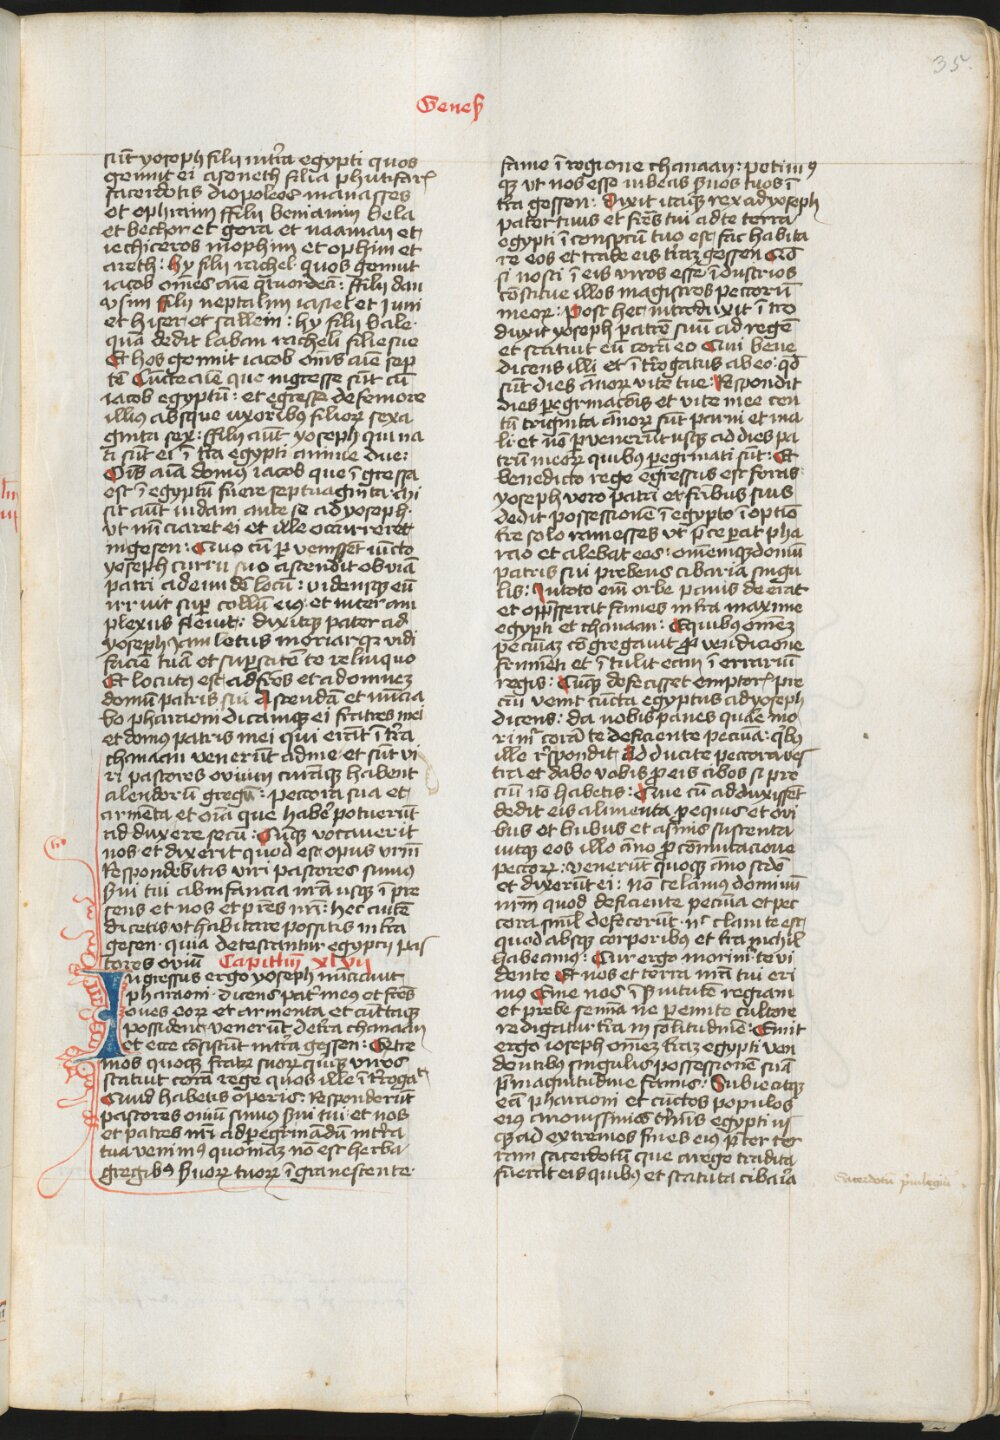 35
Geneß
sūt yoseph filij ī t̄ra egypti quos
genuit ei aseneth filia phutifar
sacerdotis diopoleos manasses
et ephraim ffilij beniamin bela
et bechor et gera et naaman et
iechi et ros mophim et ophim et
areth : hy filij rachel quos genuit
iacob om̄es aīe q̄tuordecī : ffilij dan
vsim ffilij neptalim iasiel et Juni
et hiser et sallem : hy filij bale
quā dedit laban racheli filie sue
Et hos genuit iacob om̄s aīe sep
tē Cūcte aīe que ingresse sūt cū
iacob egyptū : et egresse de femore
illiꝰ absque uxoribꝰ filioꝝ sexa
ginta sex : ffilij aūt yoseph qui na
ti sūt ei ī t̄ra egypti anime due :
Om̄s aīa domꝰ iacob que īgressa
est ī egyptū fuere septuaginta mi
sit aūt iudam ante se ad yoseph
vt nūciaret ei et ille occurreret
ingesen : Quo cū ꝑvenisset iūcto
yoseph curru suo ascendit obviā
patri ad eundē locū : vidensqꝫ eū
irruit suꝑ collū eiꝰ et inter am
plexus flevit : dixitqꝫ pater ad
yoseph yam letus moriar qꝛ vidi
faciē tuā et suꝑstitē te relinquo
Et locutꝰ est ad fr̄es et ad omnez
domū patris sui Ascendā et nūcia
bo pharaoni dicamqꝫ ei fratres mei
et domꝰ patris mei qui erāt ī t̄ra
chanaan venerūt ad me et sūt vi
ri pastores ovium curāqꝫ habent
alendorū gregū : peccora sua et
armenta et oīa que hab̄e potuerūt
ad duxere secū : Cūqꝫ vocaverit
nos et dixerit quod est opus vr̄m
Respondebitis viri pastores sumus
ẜui tui ab infancia nr̄a usqꝫ ī pre
sens et nos et pr̄es nr̄i : hec autē
dicetis ut habitare possitis in t̄ra
gesen quia detestantur egyptij pas
tores oviū Capitlm̄ xlvii
Ingressus ergo yoseph nūciavit
pharaoni dicens pat̄ meꝰ et fr̄es
oves eoꝝ et armenta et cūctaqꝫ
possidēt venerūt de t̄ra chanaan
et ecce cōsistūt in t̄ra gessen : Extre
mos quoqꝫ fratꝝ suoꝝ quīqꝫ viros
statuit corā rege quos ille īt̄rogat
Quid habetis operis : Responderūt
pastores oviū sumus ẜui tui et nos
et patres nr̄i ad peḡrinādū in t̄ra
tua venimꝰ quoniaꝫ nō est herba
gregibꝰ ẜuoꝝ tuoꝝ īgravescente
fame ī regione chanaan : petimꝰ
qꝫ vt nos esse iubeas ẜuos tuos ī
t̄ra gessen : Dixit itaqꝫ rex ad yoseph
pater tuus et fr̄es tui ad te terra
egypti ī conspc̄tū tuo est fac habita
re eos et trade eis t̄raꝫ gessen Qd̄
si nosti ī eis viros esse īdustrios
cōstitue illos magistros peccorū
meoꝝ : Post hec introduxit ītro
duxit yoseph patrē suū ad regē
et statuit eū corā eo Cui bene
dicens illi et īt̄rogatus ab eo : qd̄
sūt dies ānoꝝ vite tue : Respondit
dies peḡrinac̄ois et vite mee cen
tū triginta ānoꝝ sūt parui et ma
li et nō ꝑvenerūt usqꝫ ad dies pa
trū meoꝝ quibus ꝑegrinati sūt : Et
benedicto rege egressus est foras
yoseph vero patri et fr̄ibus suis
dedit possessionē ī egypto ī optīo
t̄re solo ramesses vt p̄ceꝑat pha
rao et alebat eos : omēmqꝫ domū
patris sui prebens cibaria singu
lis : Jn toto em̄ orbe panis deerat
et opp̄sserat fames in t̄ra maxime
egypti et chanaan : Equibꝰ omēꝫ
pecuniaꝫ cōgregavit ꝓ vendicione
frumēti et ītulit eam ī errariū
regis : Cūqꝫ defecisset emptoꝝ pre
ciū venit cūcta egyptus ad yoseph
dicens : da nobis panes quare mo
rim̄ corā te deficiente pecūa : qͥbꝰ
ille r̄spondit Adducite peccora ves
tra et dabo vobis ꝓ eis cibos si pre
ciū nō habetis : Que cū adduxisset
dedit eis alimenta ꝓ equis et ovi
bus et bubus et asinis sustenta
uitqꝫ eos illo āno ꝓ cōmutacione
peccoꝝ : venerūt quoqꝫ āno sc̄do
et dixerūt ei : nō celamus dominū
nr̄m quod deficiente pecūa et pec
cora simul defecerūt : nͨ clam te est
quod absqꝫ corporibꝰ et t̄ra nichil
habeamꝰ : Cur ergo morim̄ te vi
dente Et nos et terra nr̄a tui eri
mꝰ Eme nos ī ẜuitutē regiam
et prebe semīa ne ꝑeunte cultore
redigatur t̄ra in solitudinē : Emit
ergo ioseph omēꝫ t̄raꝫ egypti ven
dentibꝰ singulis possessionē suā
p̄ magnitudine famis : Subiecitqꝫ
eā pharaoni et cūctos populos
eiꝰ a novissimis t̄mīs egypti us
qꝫ ad extremos fines eiꝰ p̄ter ter
ram sacerdotū que a rege tradita
fuerat eis quibꝰ et statuta cibaria
Sacerdotū priuilegiū